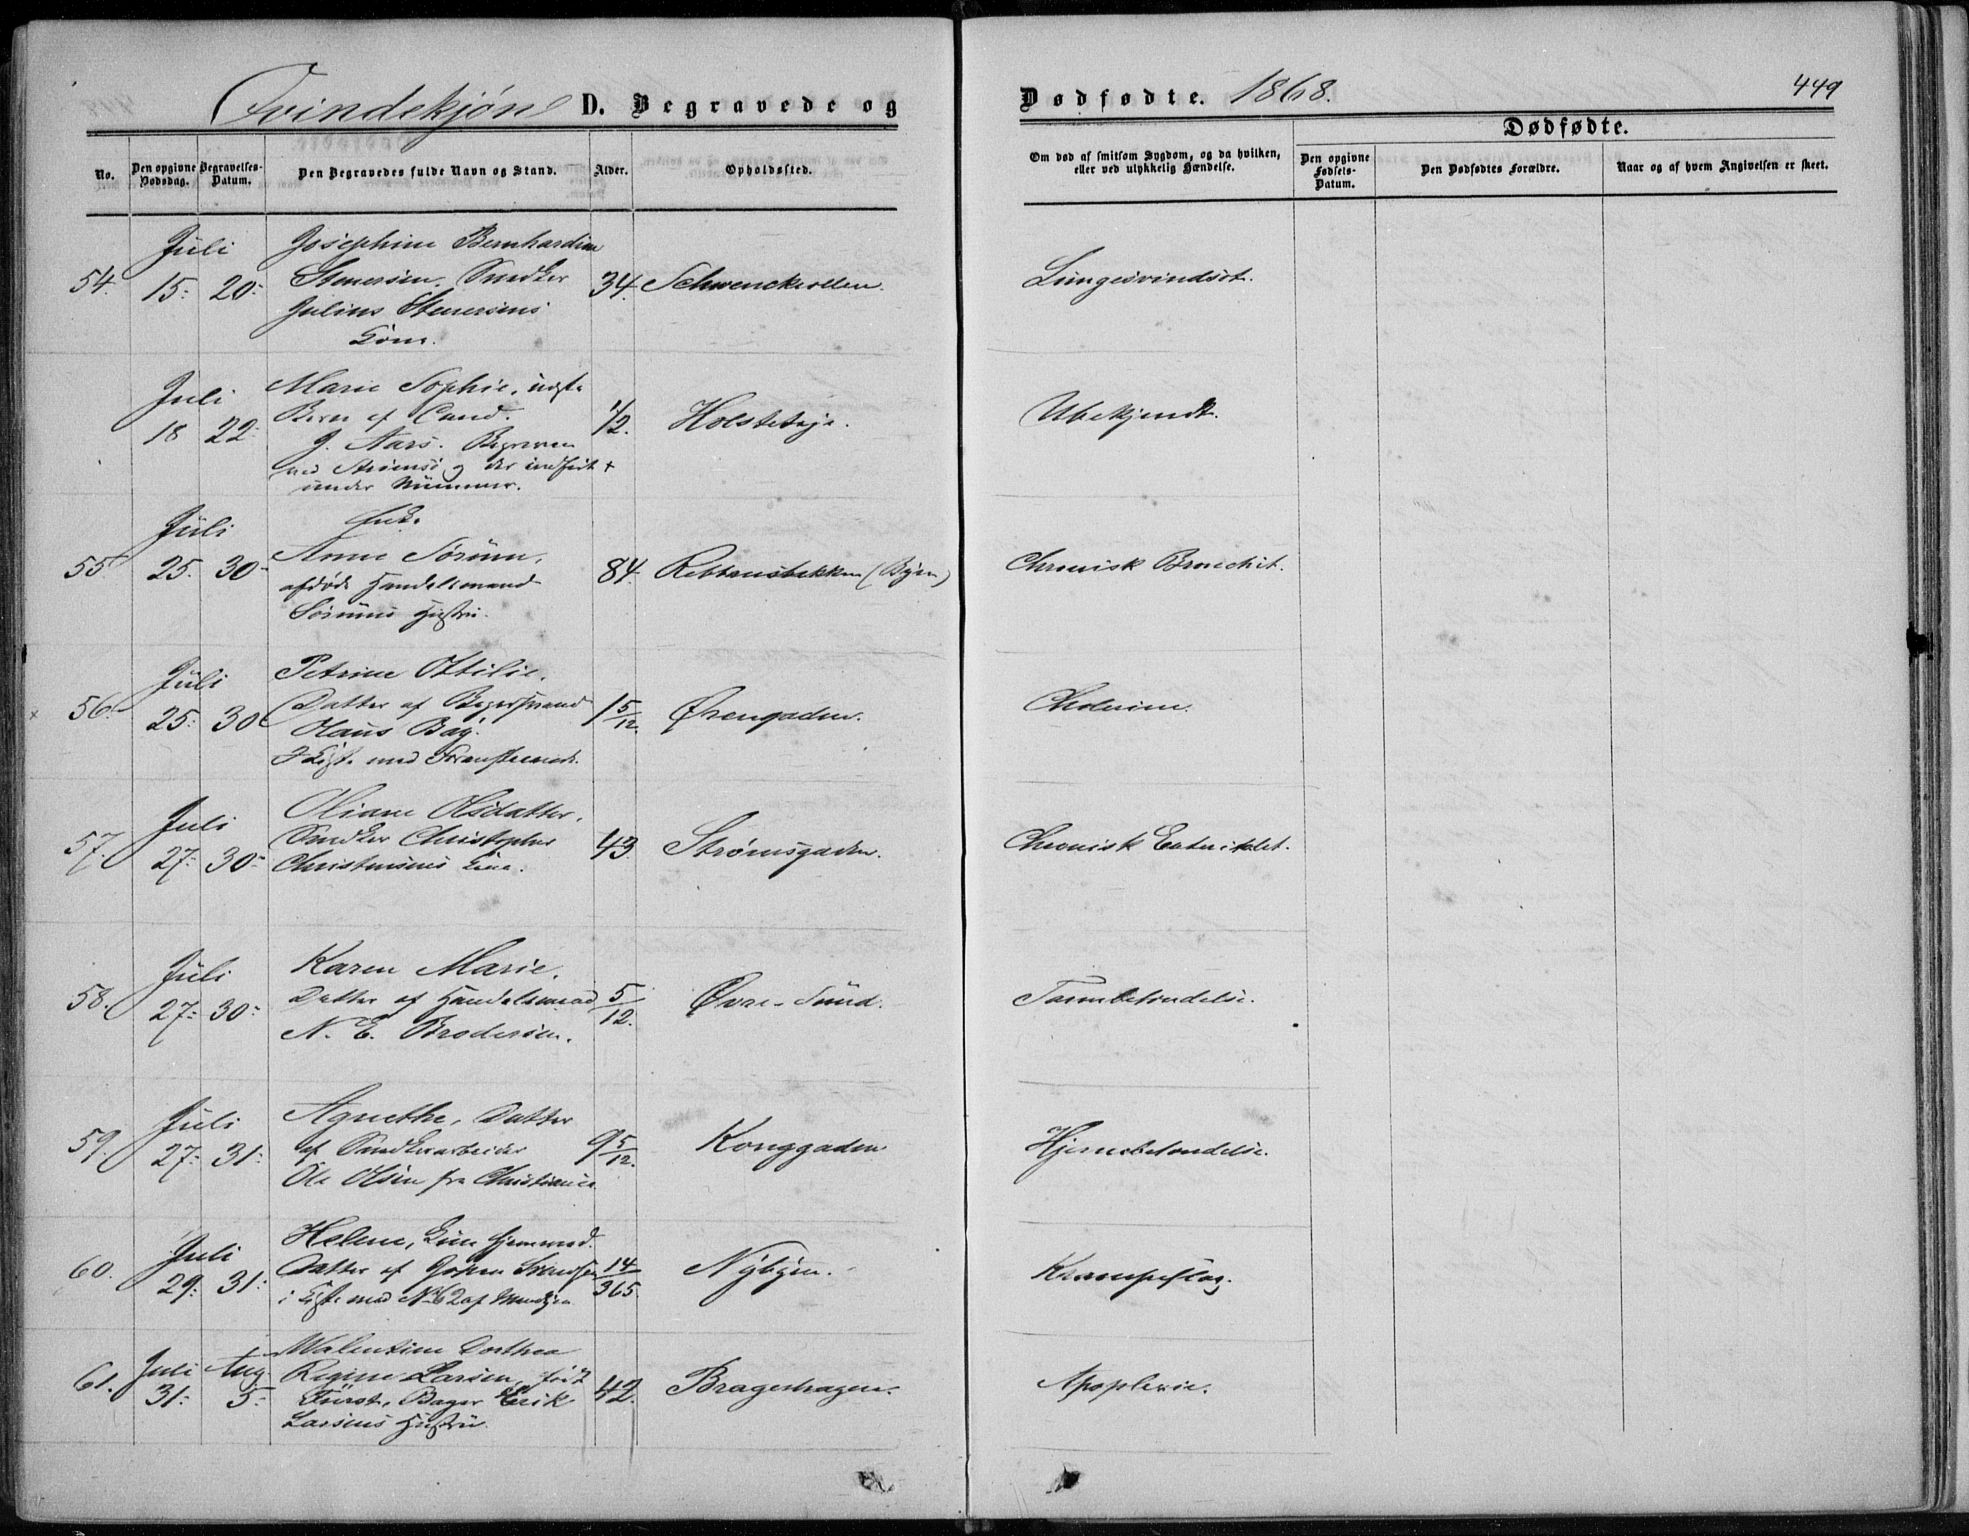 Qvindekjøn D. Begravede og Dødfødte. 1868. 449
No.
Den opgivne Dødsdag.
Begravelses-Datum.
Den Begravedes fulde Navn og Stand.
Alder.
Opholdssted.
Om død af smitsom Sygdom, og da hvilken, eller ved ulykkelig Hændelse.
Dødfødte.
Den opgivne Fødsels-Datum.
Den Dødfødtes Forældre.
Naar og af hvem Angivelsen er skeet.
Juli Josephine Bernhardine
54. 15. 20. Stenersen, Snedker 34. Schwenckvolden. Lungesvindsot.
Julius Stenersens
Kone.
Juli Marie Sophie, uægte
18 22. Barn af Cand. 1/2. Holstetøje. Ubekjendt.
J. Aars. Begraven
ved Strømsø og der indført
under Nummer.
Juli Enke
55 25. 30. Anne Sørum, 84. Rebbansbakken (Byen) Chronisk Bronchit.
afdøde Handelsmand
Sørums Hustru.
Juli Petrine Ottilie,
56. 25. 30. Datter af 1 5/12. Øvengaden. Cholerine.
Hans Bay.
I Kiste med
Juli Oliane Olsdatter,
57. 27. 30. Snedker Christopher 43. Strømsgaden. Chronisk
Christensens Kone.
Juli Karen Marie,
58. 27. 30. Datter af Handelsmand 5/12. Øvre-Sund. Tarmbetændelse.
N. E. Brodersen.
Juli Agnethe, Datter
59. 27. 31. af Snedkerarbeider 9 5/12. Konggaden Hjernebetændelse.
Ole Olsen fra Christiania
Juli Helene, hjemmed.
60. 29. 31. Datter af Johan Svendsen 14/365. Nybyen. Krampeslag.
i Kiste med No 62 af Mandkjøn
Juli Aug Walentine Dorthea
61. 31. 5. Regine Larsen, født 42. Bragerhagen. Apoplexie.
Fürst, Bager Erik
Larsens Hustru.